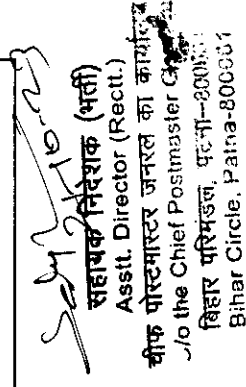 सहायक निदेशक (भर्ती)
Asstt. Director (Rectt.)
चीफ पोस्टमास्टर जनरल का कार्यालय
/o the Chief Postmaster
बिहार परिमंडल, पटना-800001
Bihar Circle, Patna-800001